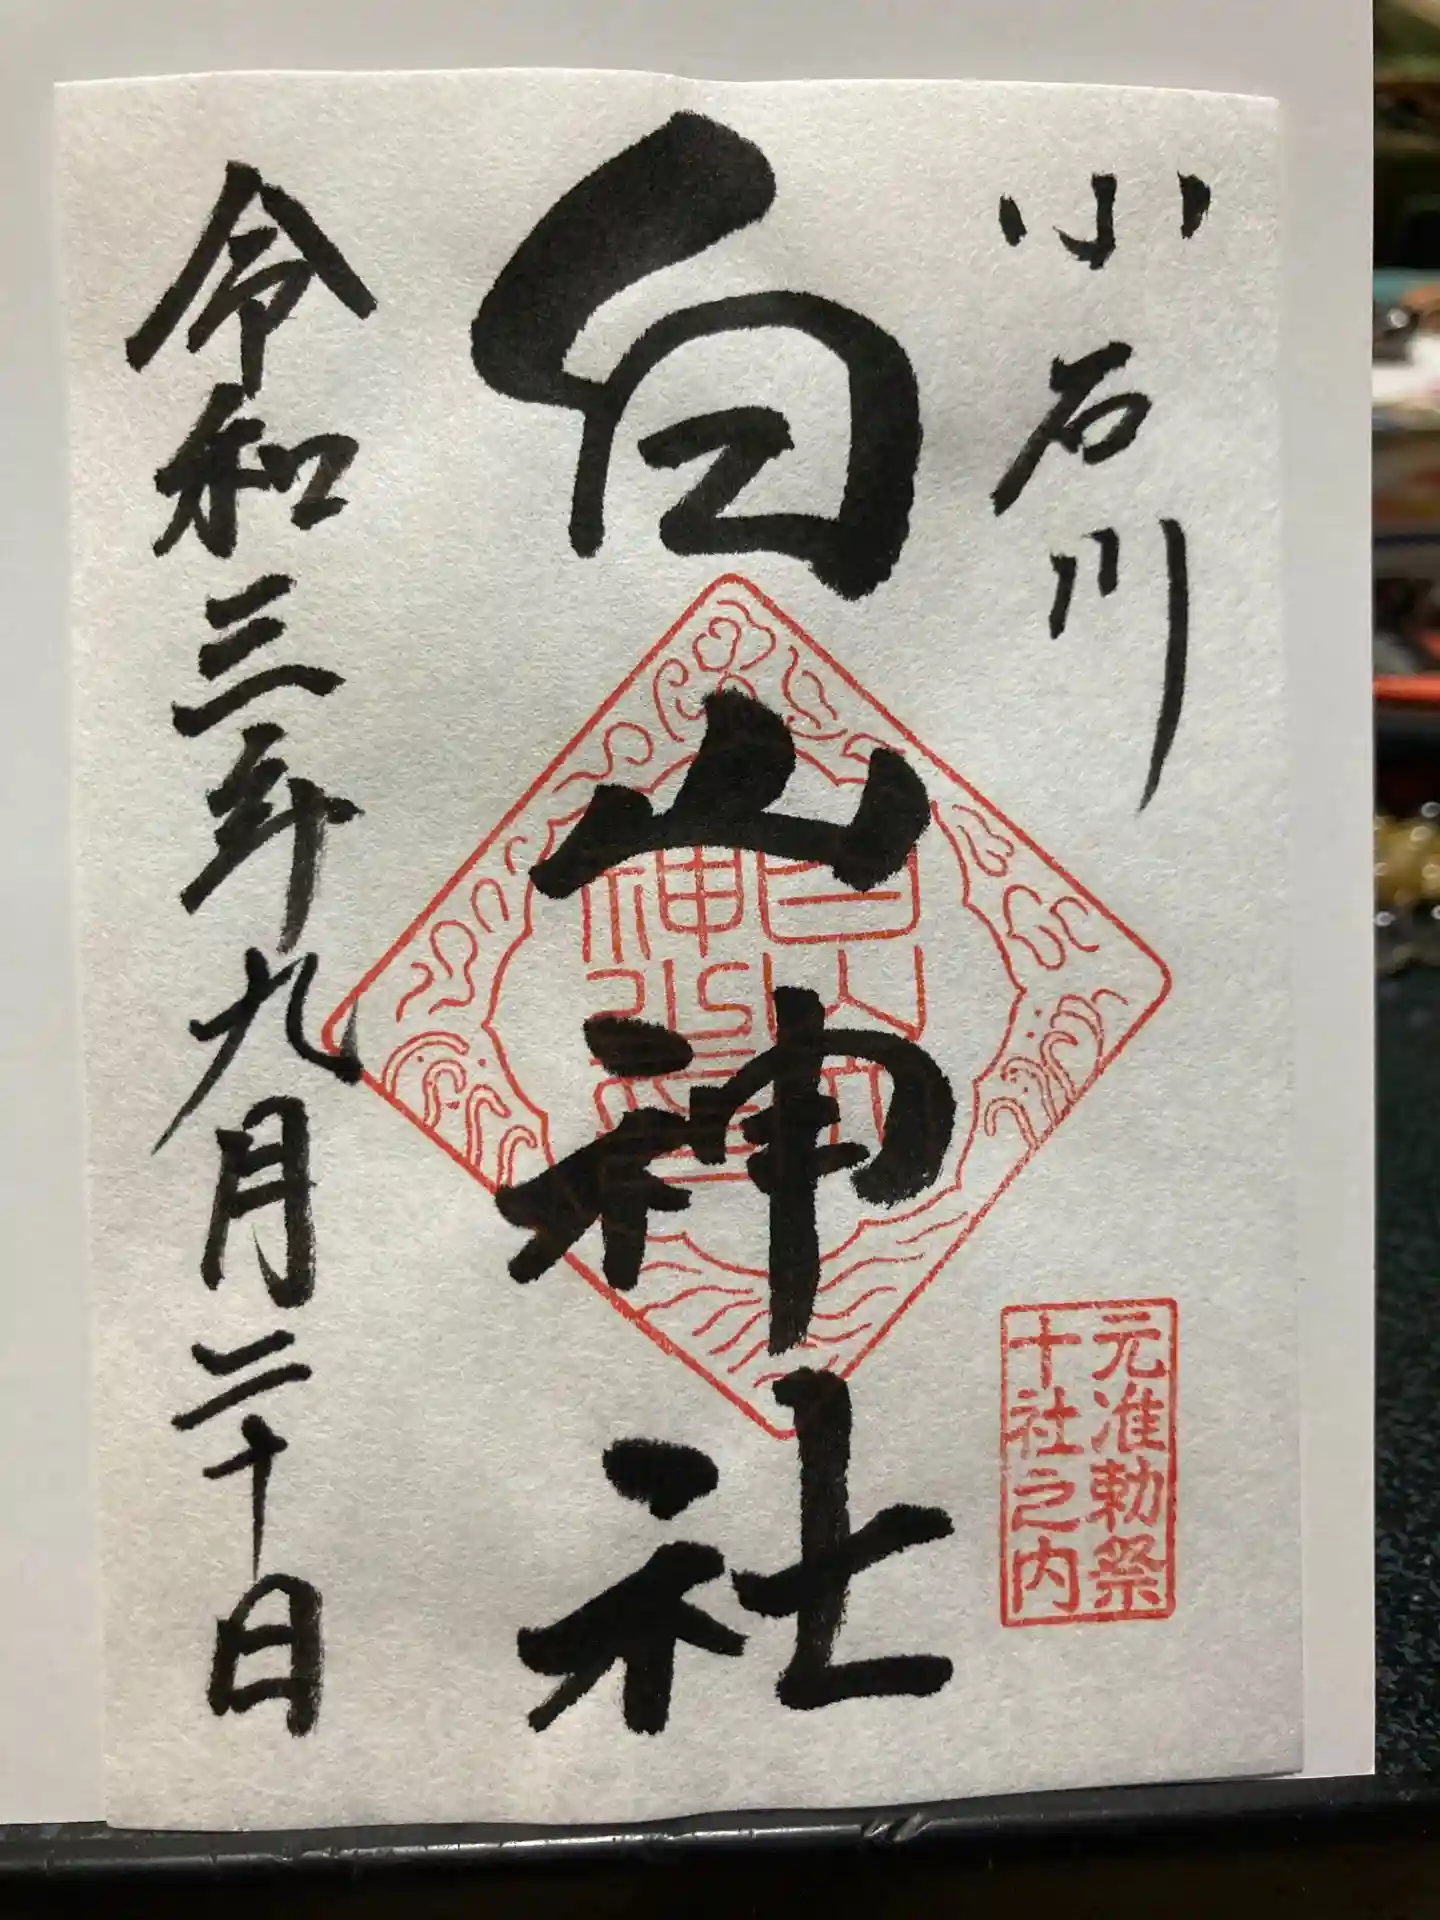 小石川
元准勅祭
十社之内
白山神社
令和三年九月二十日